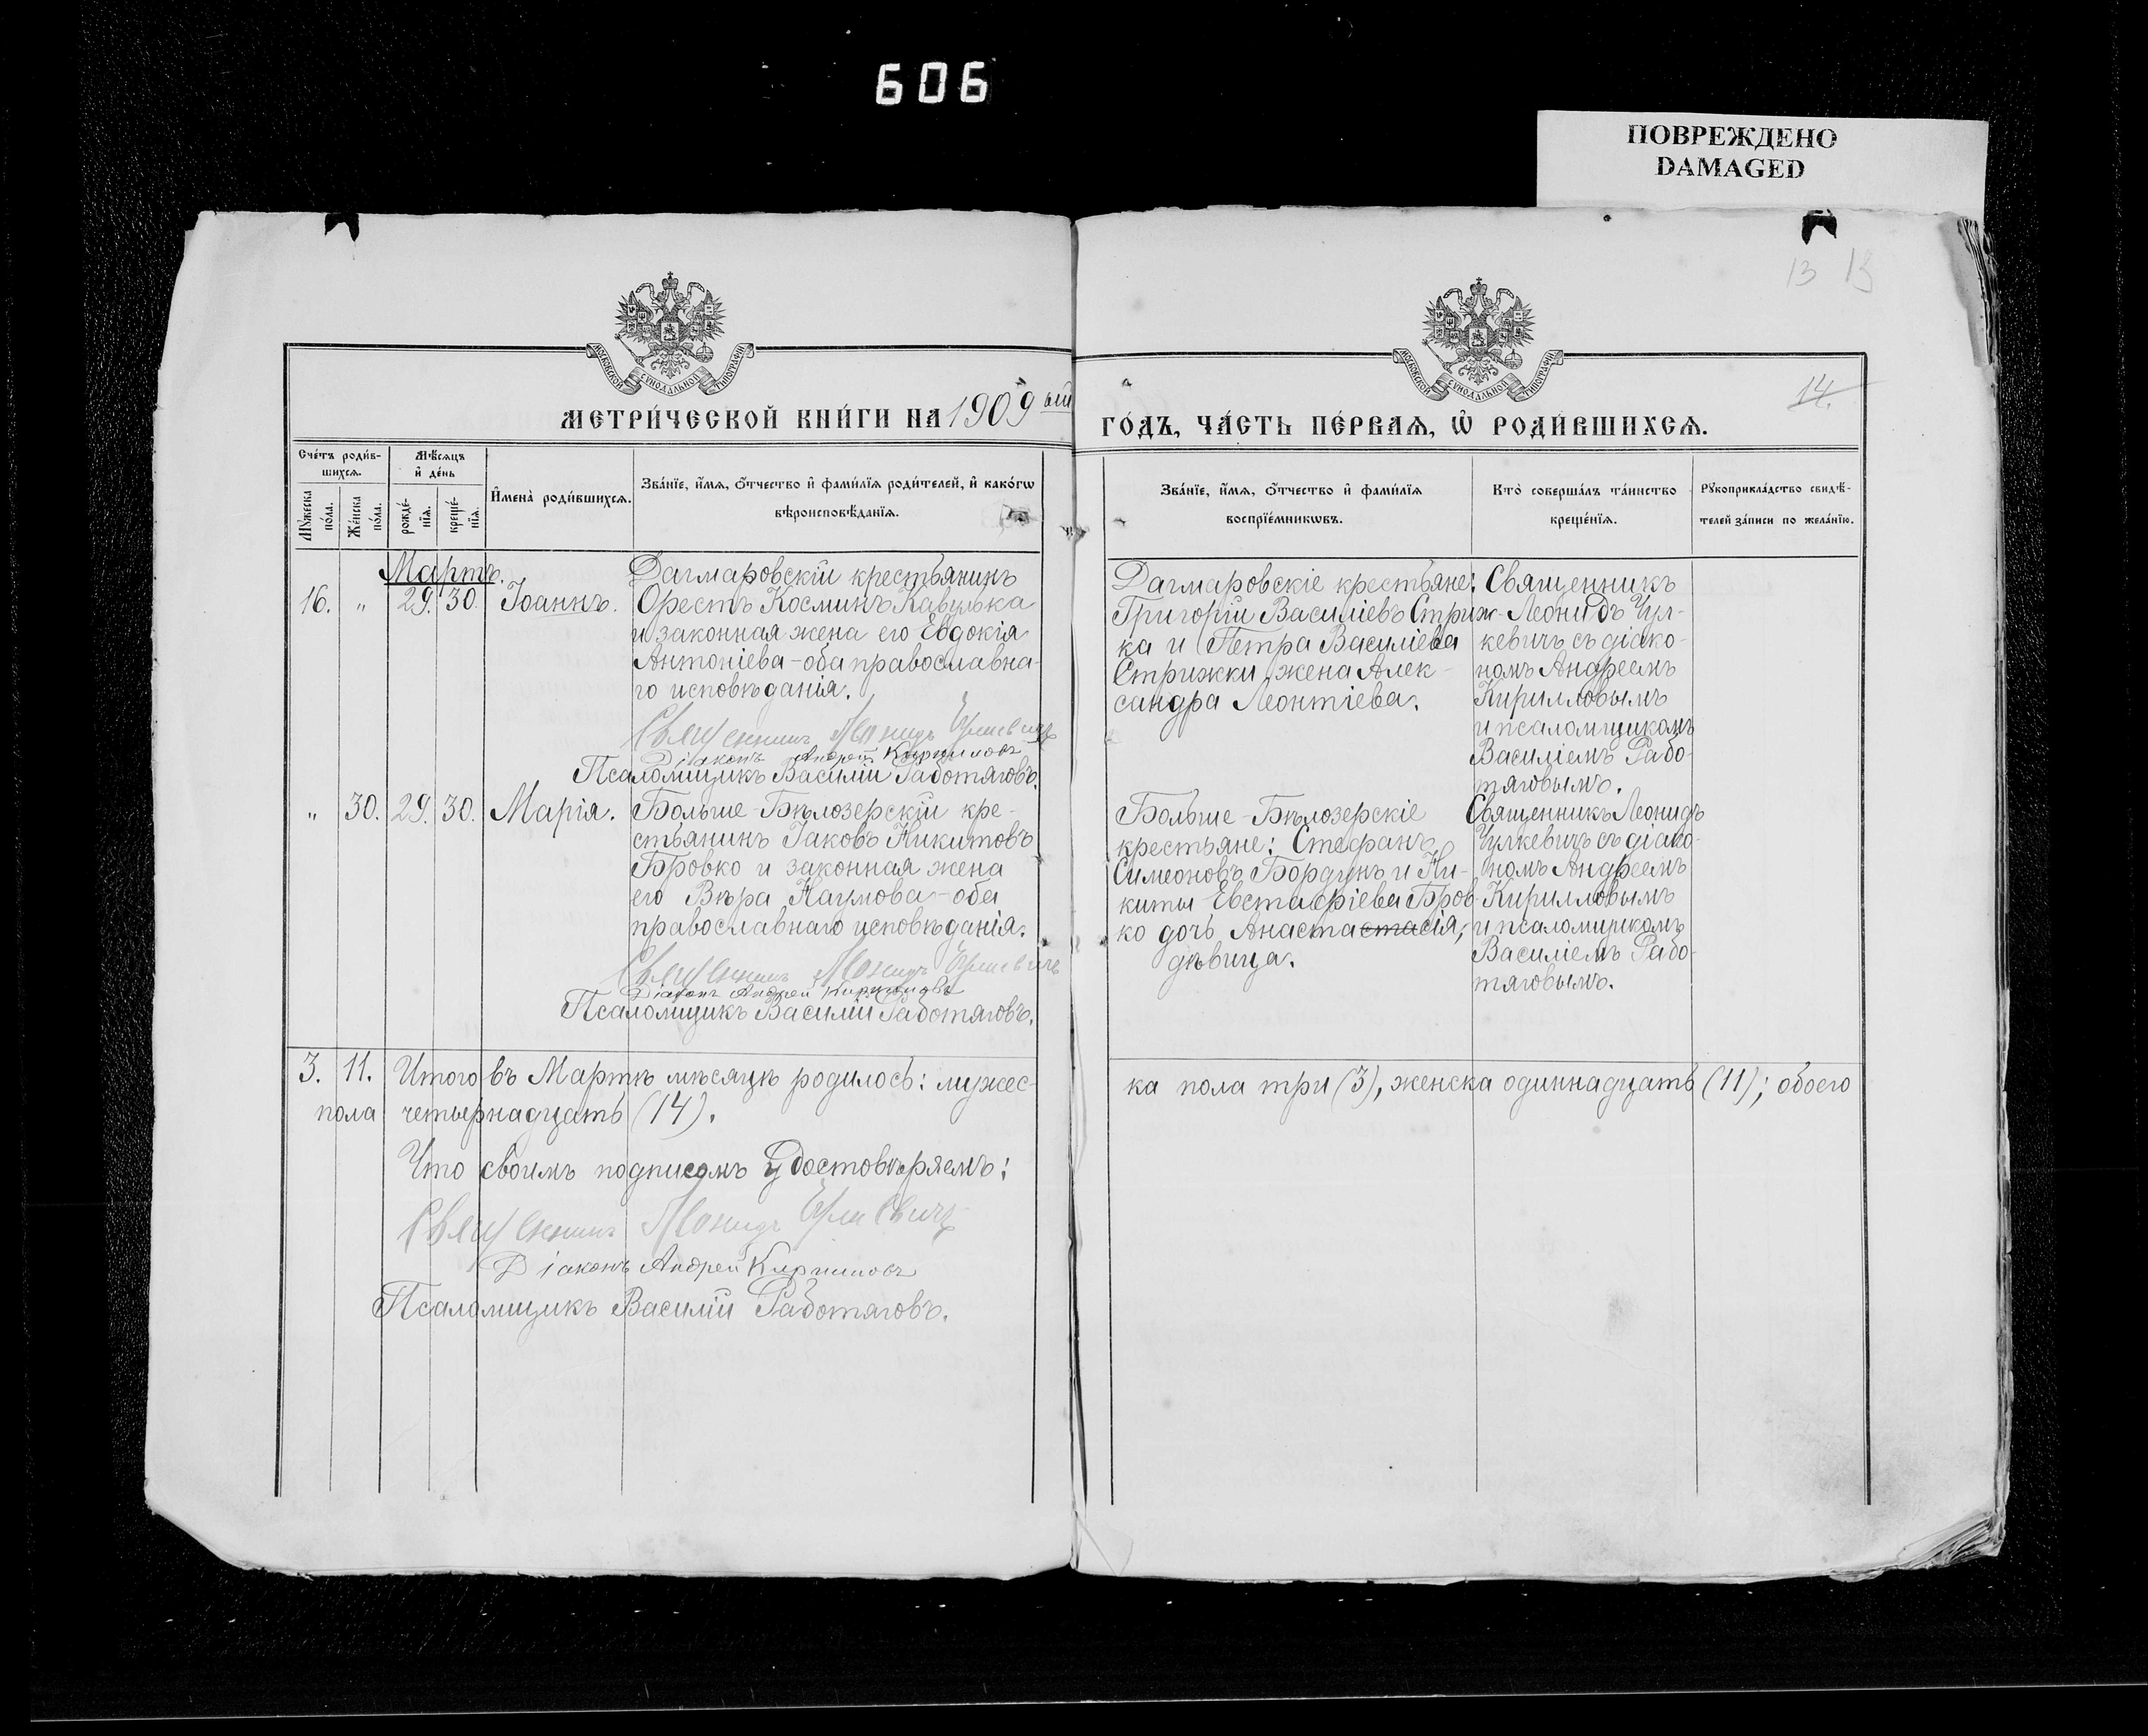 606
ПОВРЕЖДЕНО
DAMAGED
13 13
МОСКОВСКОЙ СѴНОДАЛЬНОЙ ТИПОГРАФІИ
МОСКОВСКОЙ СѴНОДАЛЬНОЙ ТИПОГРАФІИ
14.
МЕТРИ́ЧЕСКОЙ КНИ́ГИ НА 1909 ый
ГО́ДЪ, ЧА́СТЬ ПЕ́РВАЯ, Ѡ҆ РОДИ́ВШИХСЯ.
Сче́тъ роди́в-
шихся.
Мꙋ́жеска
по́ла.
Же́нска
по́ла.
Мѣ́сяцъ
и҆ де́нь
рожде́-
нїя.
креще́-
нїя.
И҆мена̀ роди́вшихся.
Зва́нїе, и҆́мя, ѻ҆́тчество и҆ фами́лїя роди́телей, и҆ како́гѡ
вѣроисповѣ́данїя.
Зва́нїе, и҆́мя, ѻ҆́тчество и҆ фами́лїя
воспрїе́мникѡвъ.
Кто̀ соверша́лъ та́инство
креще́нїя.
Рꙋкоприкла́дство свидѣ́-
телей за́писи по жела́нїю.
Мартъ.
16. „ 29. 30. Іоаннъ.
Дагмаровскій крестьянинъ
Орестъ Косминъ Кавулька
и законная жена его Евдокія
Антоніева - оба православна-
го исповѣданія.
Священникъ Леонидъ Чулкевичъ
Діаконъ Андрей Кирилловъ
Псаломщикъ Василій Работяговъ.
Дагмаровскіе крестьяне:
Григорій Василіевъ Стриж-
ка и Петра Василіева
Стрижки жена Алек-
сандра Леонтіева.
Священникъ
Леонидъ Чул-
кевичъ съ діако-
номъ Андреемъ
Кирилловымъ
и псаломщикомъ
Василіемъ Рабо-
тяговымъ.
„ 30. 29. 30. Марія.
Больше-Бѣлозерскій кре-
стьянинъ Іаковъ Никитовъ
Бровко и законная жена
его Вѣра Наумова - оба
православнаго исповѣданія.
Священникъ Леонидъ Чулкевичъ
Діаконъ Андрей Кирилловъ
Псаломщикъ Василій Работяговъ.
Больше-Бѣлозерскіе
крестьяне: Стефанъ
Симеоновъ Бордунъ и Ни-
киты Евстафіева Бров-
ко дочь Анастастасія,
дѣвица.
Священникъ Леонидъ
Чулкевичъ съ діако-
номъ Андреемъ
Кирилловымъ
и псаломщикомъ
Василіемъ Рабо-
тяговымъ.
3. 11. Итого въ Мартѣ мѣсяцѣ родилось: мужес-
ка пола три (3), женска одиннадцать (11); обоего
пола четырнадцать (14).
Что своимъ подписомъ удостовѣряемъ:
Священникъ Леонидъ Чулкевичъ
Діаконъ Андрей Кирилловъ
Псаломщикъ Василій Работяговъ.